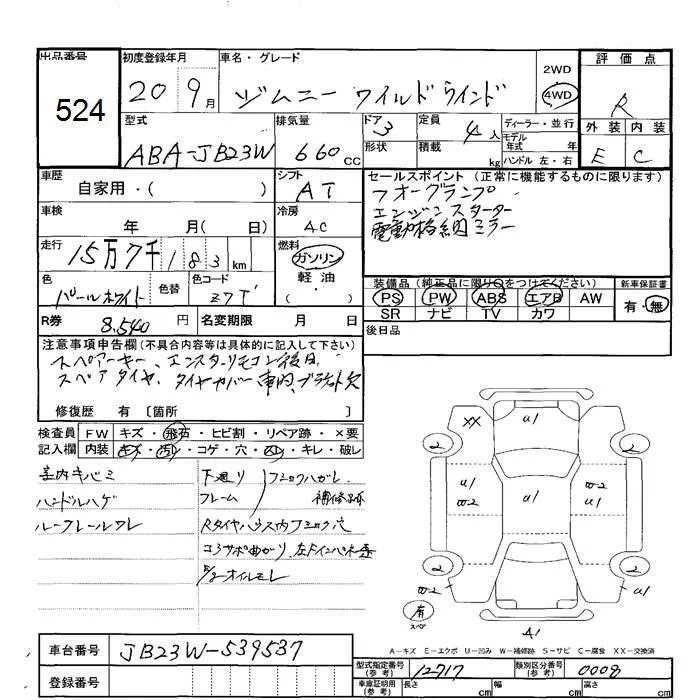 出品番号 524
初度登録年月 20 9月
車名・グレード ジムニー ワイルドウインド
2WD
4WD
評価点 R
外装 内装
E C
型式 ABA-JB23W
排気量 660cc
ドア 3
形状
定員 4人
積載 kg
ディーラー・並行
モデル年式 年
ハンドル 左・右
車歴 自家用・( )
シフト AT
セールスポイント(正常に機能するものに限ります)
フォーグランプ
エンジンスターター
電動格納ミラー
車検 年 月( 日)
冷房 AC
走行 15万7千183km
燃料 ガソリン
軽油
・( )
色 パールホワイト
色替
色コード Z7T
装備品(純正品に限り○をつけてください)
新車保証書
PS PW ABS エアB AW
有・無
SR ナビ TV カワ
R券 8,540円
名変期限 月 日
後日品
注意事項申告欄(不具合内容等は具体的に記入して下さい)
スペアーキー、エンスタリモコン後日
スペアタイヤ、タイヤカバー車内、ブラケット欠
修復歴 有〔箇所 〕
検査員記入欄
FW キズ・飛石・ヒビ割・リペア跡・×要
内装 キズ・汚レ・コゲ・穴・スレ・キレ・破レ
室内キバミ
ハンドルハゲ
ルーフレールワレ
下廻り
フレーム
フミックハガレ
補修跡
Rタイヤハウス内フミック穴
コアサポ曲がり
オイルモレ
XX U1
2 2
U1 W2
U1
U1 W2
2 2
W2 W2
有
スペア
A1
A-キズ E-エクボ U-凹み W-補修跡 S-サビ C-腐食 XX-交換済
車台番号 JB23W-539537
登録番号
型式指定番号(参考) 12717
類別区分番号(参考) 0008
車庫証明用(参考) 長さ cm 幅 cm 高さ cm